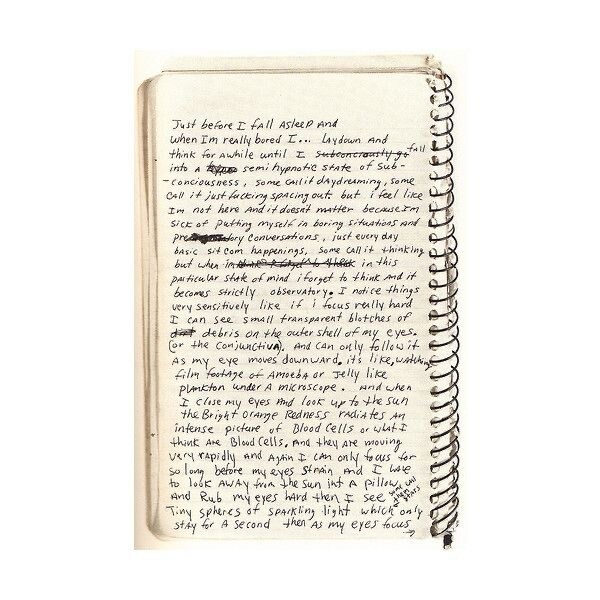 Just before I fall asleep and
when Im really bored I... Laydown and
think for awhile until I subconciously go fall
into a semi hypnotic state of sub-
-conciousness, some call it daydreaming, some
call it just fucking spacing out. but i feel like
Im not here and it doesnt matter because Im
sick of putting myself in boring situations and
conversations, just every day
basic sit com happenings. some call it thinking
but when im in this
particular state of mind i forget to think and it
becomes strictly observatory. I notice things
very sensitively like if i focus really hard
I can see small transparent blotches of
dirt debris on the outer shell of my eyes.
(or the conjunctiva). And can only follow it
as my eye moves downward. its like, watching
film footage of Amoeba or Jelly like
plankton under a microscope. And when
I close my eyes and look up to the sun
the Bright Orange Redness radiates an
intense picture of Blood Cells or what I
think are Blood Cells. And they are moving
very rapidly and again I can only focus for
so long before my eyes strain and I have
to look away from the sun int a pillow
and Rub my eyes hard then I see some call them stars
Tiny spheres of sparkling light which only
stay for a second then as my eyes focus
→